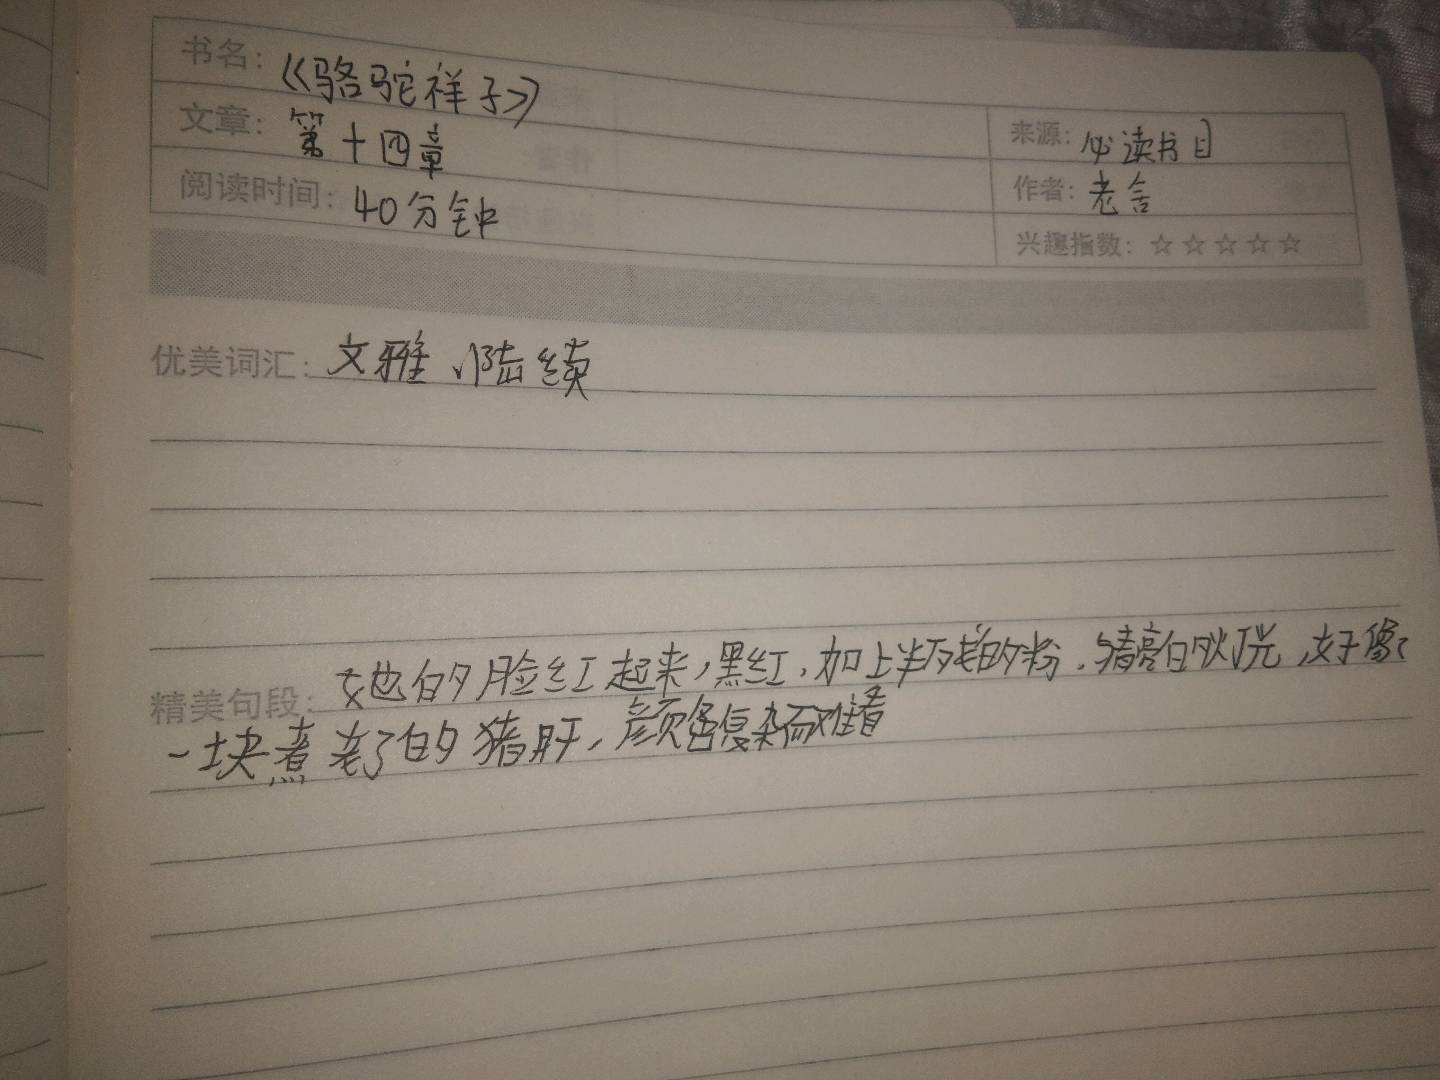 书名：《骆驼祥子》
来源：必读书目
文章：第十四章
作者：老舍
阅读时间：40分钟
兴趣指数：☆☆☆☆☆
优美词汇：文雅、陆续
精美句段：她的脸红起来，黑红，加上半残的粉，与青亮的灯光，好像
一块煮老了的猪肝，颜色复杂而难看